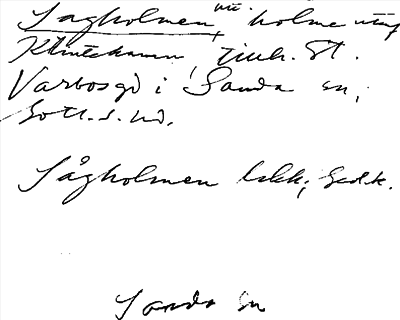 Sågholmen, holme utanf
Klintehamn, tillh. St.
Varbosgd i Sanda sn,
Gotl. s. hd.
Sågholmen lokk; Ged.k.
Sanda sn